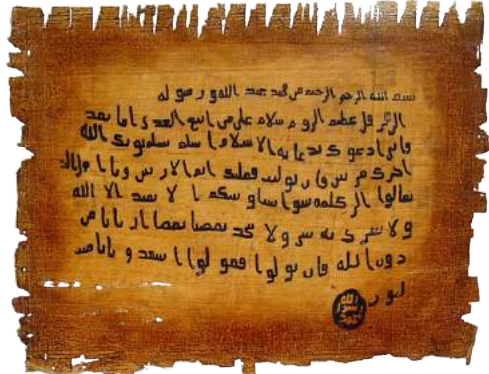 بسم الله الرحمن الرحيم من محمد عبد الله و رسو له
الى هر قل عظيم الروم سلام على من اتبع الهدى اما بعد
فانى ادعو ك بدعا ية الا سلام ا سلم تسلم يوتك الله
اجرك مر تين فا ن توليت فعليك اثم الار يسين و يا ا هل الك
تعالوا الى كلمه سوا بيننا و بينكم ا لا نعبد الا الله
و لا نشر ك به شى و لا يتخذ بعضنا بعضا ار با با من
دون ا لله فان تو لوا فقو لوا ا شهد و با نا مسـ
لمو ن
الله
رسول
محمد